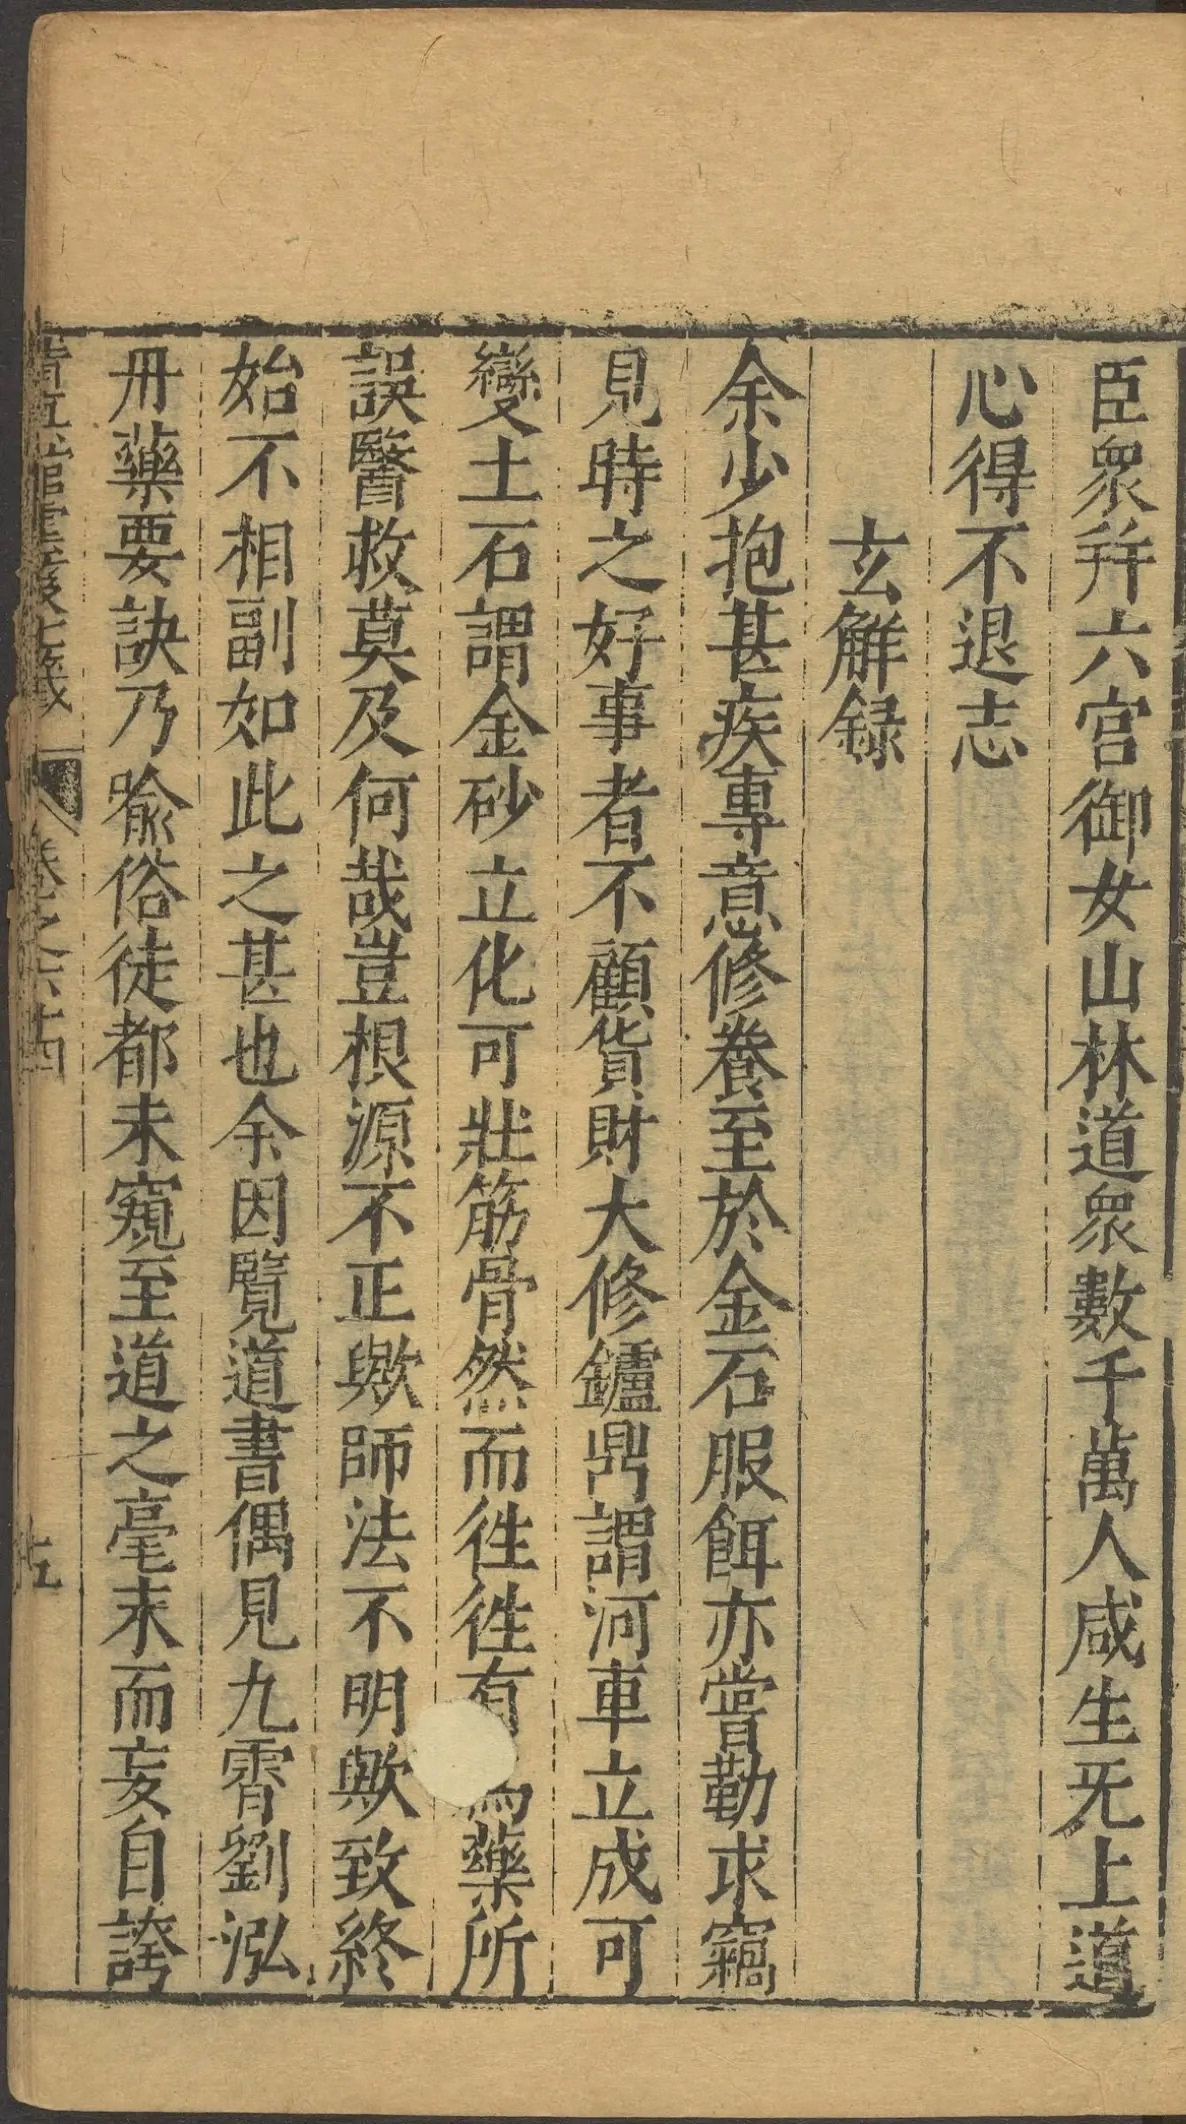 臣衆幷六宮御女山林道衆數千萬人咸生旡上道
心得不退志
玄解録
余少抱甚疾專意修養至於金石服餌亦嘗勤求竊
見時之好事者不顧貨財大修鑪鼎謂河車立成可
變土石謂金砂立化可壯筋骨然而徃徃有爲藥所
誤醫救莫及何哉豈根源不正歟師法不明歟致終
始不相副如此之甚也余因覽道書偶見九霄劉泓
丹藥要訣乃喩俗徒都未窺至道之毫末而妄自誇
卷之六十四